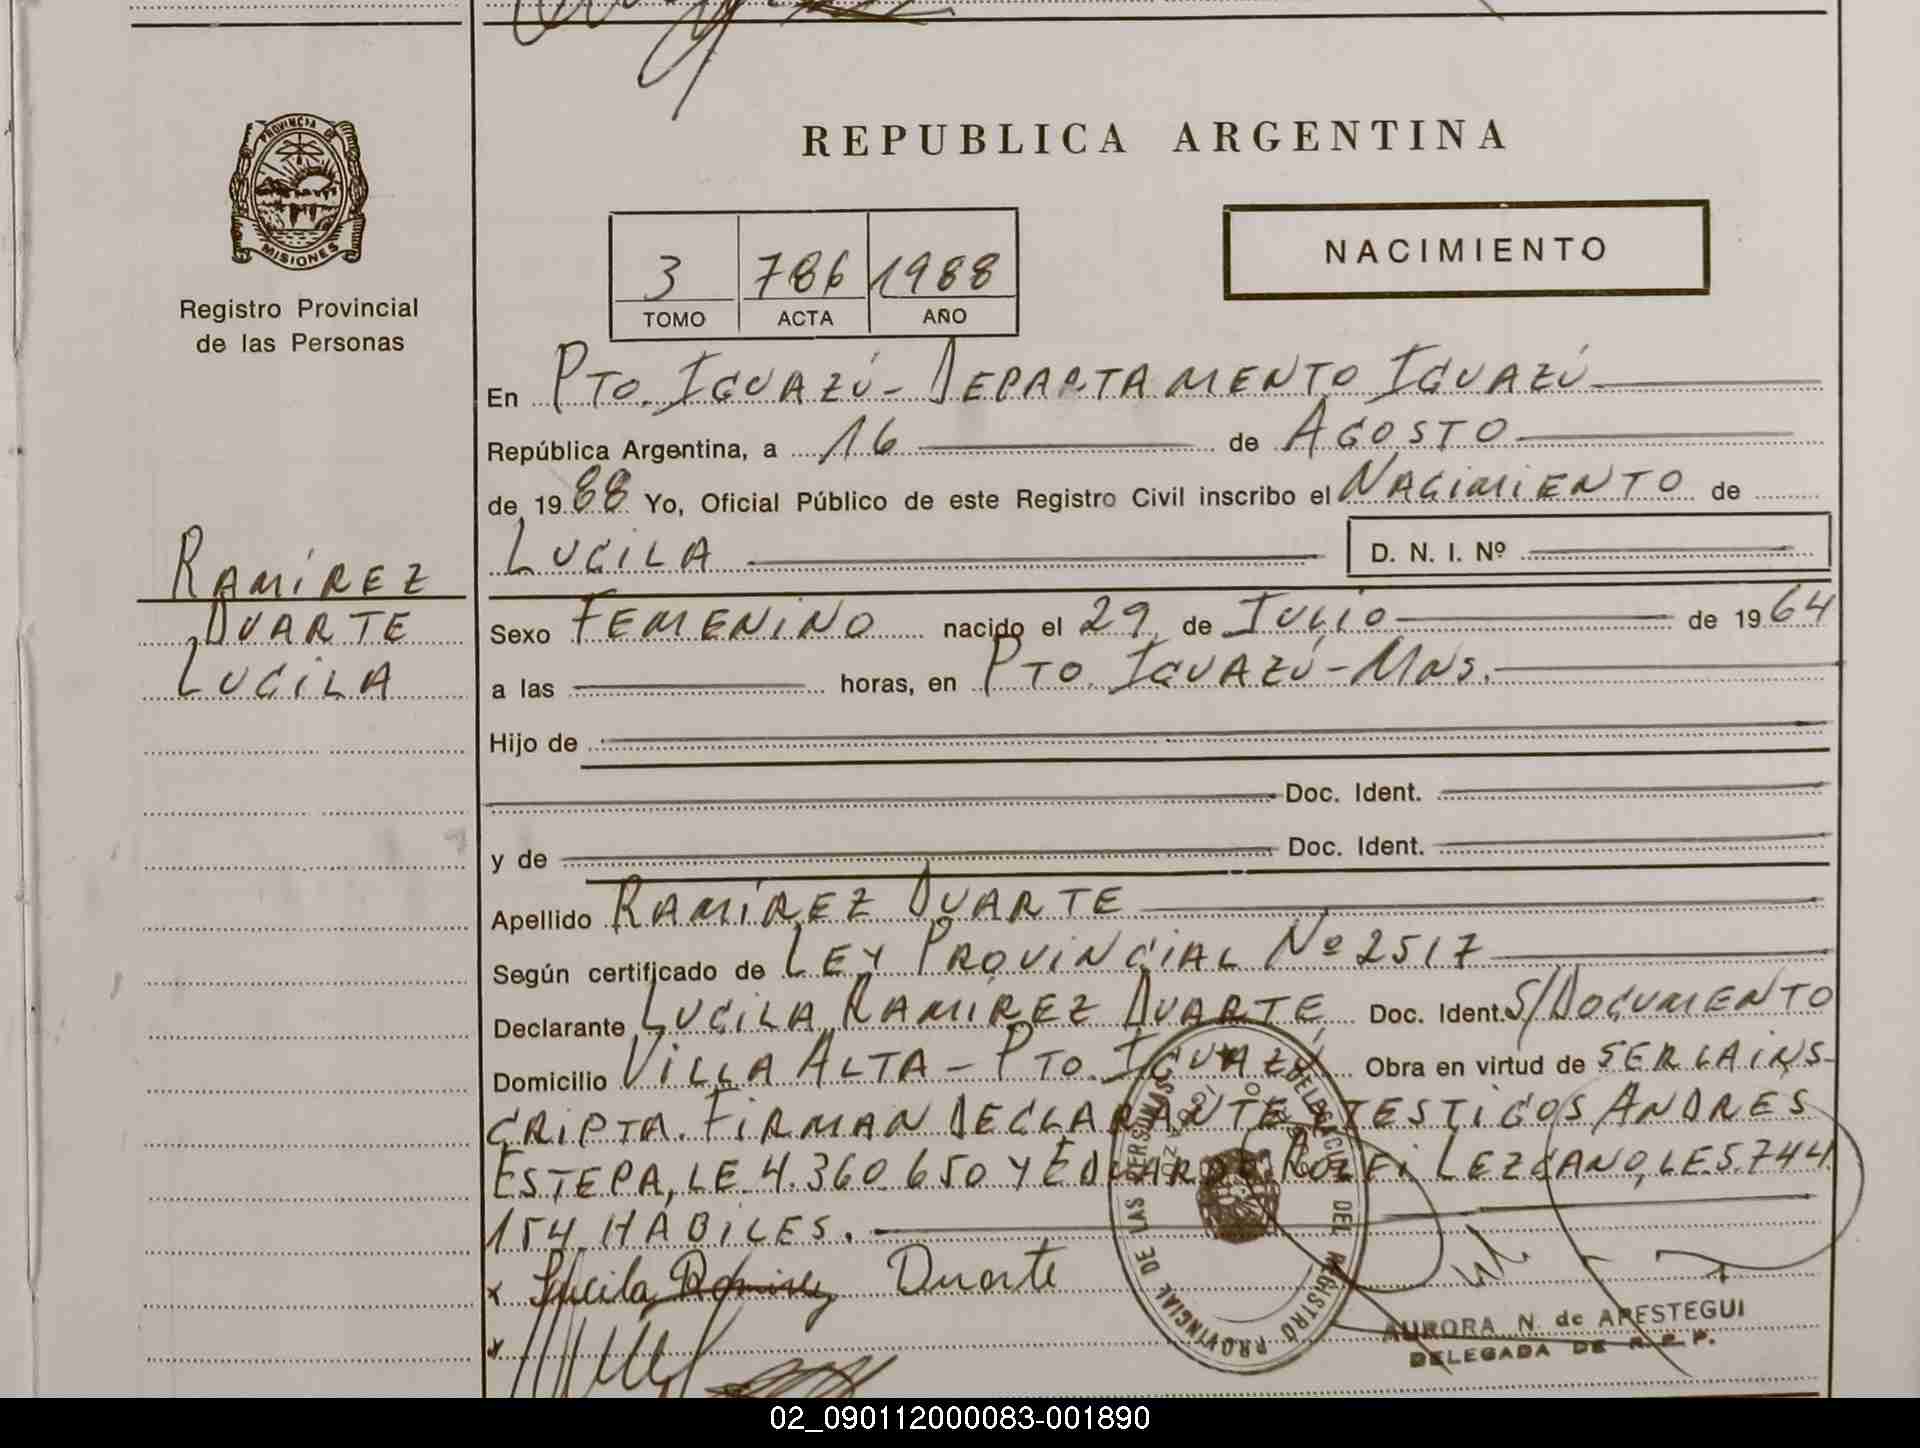 PROVINCIA DE
MISIONES
Registro Provincial
de las Personas
RAMÍREZ
DUARTE
LUCILA
REPUBLICA ARGENTINA
3 786 1988
TOMO ACTA AÑO
NACIMIENTO
En PTO. IGUAZÚ - DEPARTAMENTO IGUAZÚ
República Argentina, a 16 de AGOSTO
de 1988 Yo, Oficial Público de este Registro Civil inscribo el NACIMIENTO de
LUCILA D. N. I. Nº
Sexo FEMENINO nacido el 29 de JULIO de 1964
a las horas, en PTO. IGUAZÚ - MNS.
Hijo de
Doc. Ident.
y de Doc. Ident.
Apellido RAMÍREZ DUARTE
Según certificado de LEY PROVINCIAL Nº 2517
Declarante LUCILA RAMÍREZ DUARTE Doc. Ident. S/DOCUMENTO
Domicilio VILLA ALTA - PTO. IGUAZÚ Obra en virtud de SER LA INS-
CRIPTA. FIRMAN DECLARANTE Y TESTIGOS ANDRÉS
ESTEPA, LE 4.360.650 Y EDUARDO LEZCANO, LE 5.744
154 HÁBILES.
x Lucila Ramirez Duarte
x
DELEGACION DEL REGISTRO PROVINCIAL DE LAS PERSONAS
AURORA N. de APESTEGUI
DELEGADA DE R. P. P.
02_090112000083-001890